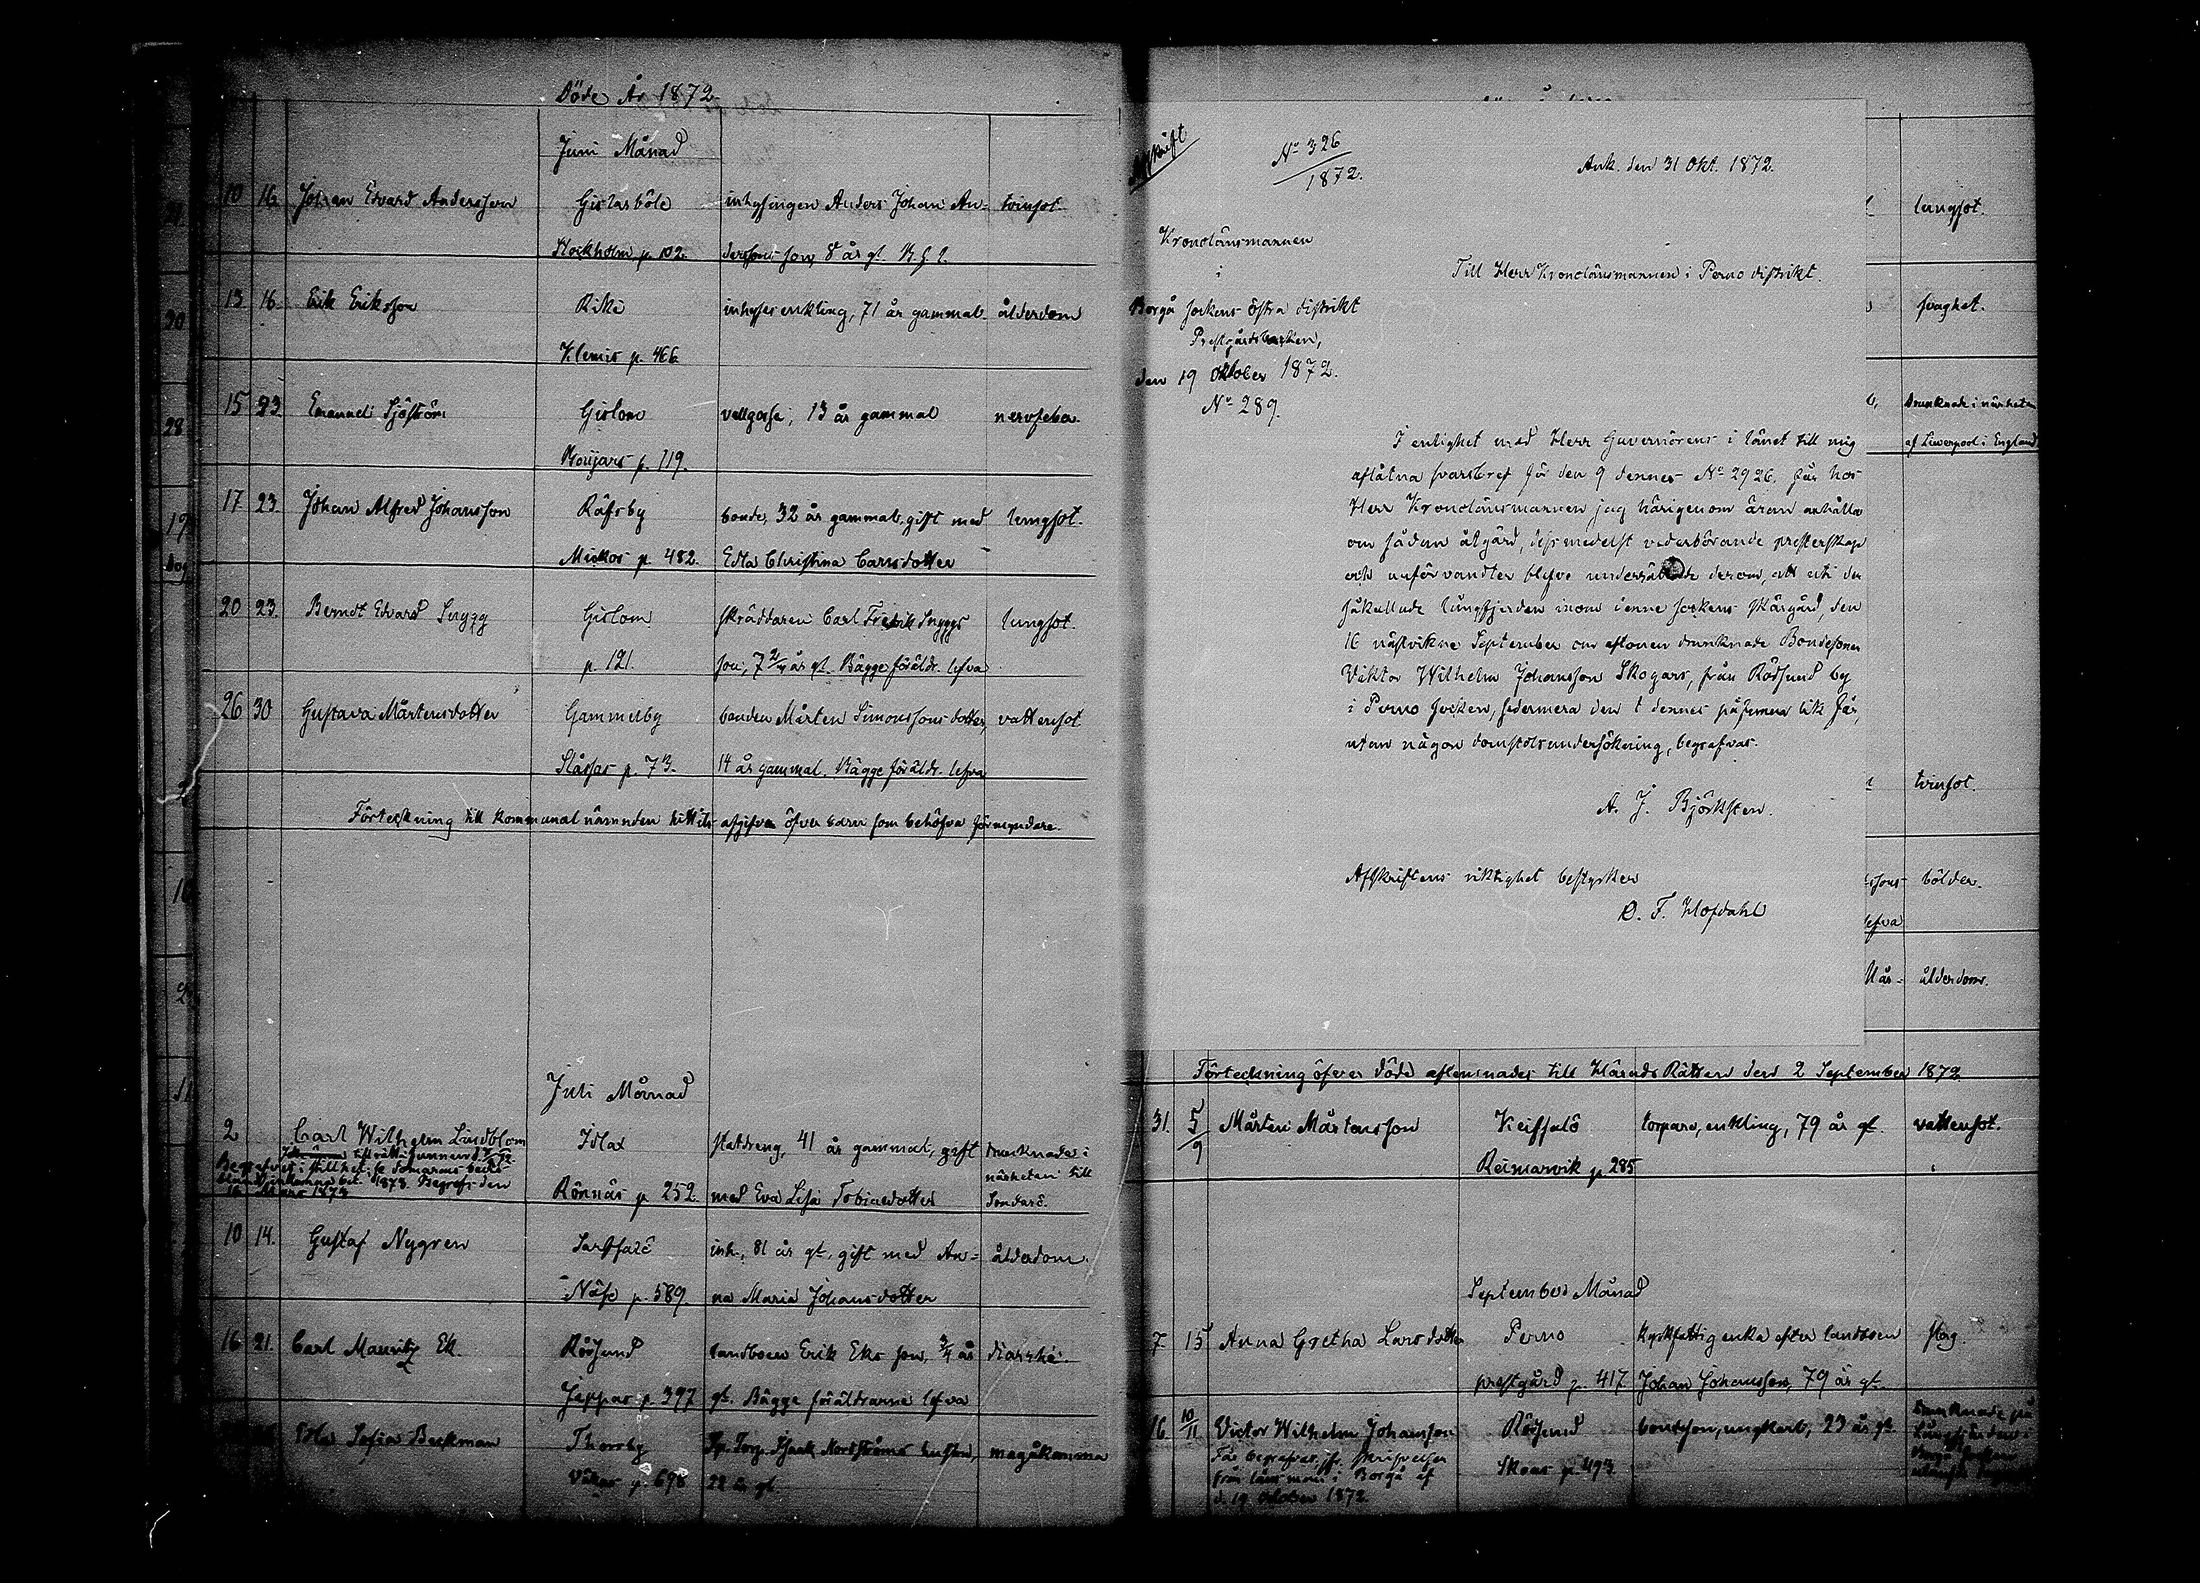 Döde År 1872
Juni Månad
10 16 Johan Edvard Andersson Gislarböle inhysingen Anders Johan An- tvinsot.
Stockholm p. 102. derssons son, 8 år gl.
13 16 Erik Eriksson Rike inhyses enkling, 71 år gammal ålderdom
Klemis p. 466.
15 23 Emanuel Sjöström Gislom vallgosse, 13 år gammal nervfeber
p. 119.
17 23 Johan Alfred Johansson Räfsby bonde, 32 år gammal, gift med lungsot.
Mickos p. 482. Edla Christina Carlsdotter
20 23 Berndt Edvard Snygg Gislom skräddaren Carl Fredrik Snyggs lungsot.
p. 121. son, 7 år gl. Bägge föräldr. lefva
26 30 Gustava Mårtensdotter Gammelby bonden Mårten Simonssons dotter, vattensot
Slåssar p. 73. 14 år gammal. Bägge föräldr. lefva
Förteckning till kommunalnämnden hittils afgifven öfver barn som behöfva förmyndare.
Juli Månad
2 Carl Wilhelm Lindblom Idlax statdreng, 41 år gammal, gift drunknade i
närheten till
Rönnäs p. 252. med Eva Lisa Tobiasdotter Sondarö.
10 14. Gustaf Nygren Sarfsalö inh., 81 år gl., gift med An- ålderdom.
Näse p. 589. na Maria Johansdotter
16 21. Carl Mauritz Ek Rödsund landboen Erik Eks son, 3/4 år diarrhé.
Jeppas p. 397 gl. Bägge föräldrarne lefva
Edla Sofia Beckman Thorsby Torp. Isaak Nordströms hustru, magåkomma
p. 698 22 år gl.
Afskrift
No 326
1872.
Ank. den 31 Okt. 1872.
Kronolänsmannen
i
Borgå sockens östra distrikt
Prestgårdsbacken,
den 19 Oktober 1872.
No 289.
Till Herr Kronolänsmannen i Perno distrikt.
I enlighet med Herr Guvernörens i länet till mig
aflåtna svarsbref för den 9 dennes No 2926, får hos
Herr Kronolänsmannen jag härigenom äran anhålla
om sådan åtgärd, hvarmedelst vederbörande presterskap
och anförvandter blefve underrättade derom, att uti den
såkallade Långfjerden inom denne sockens skärgård, den
16 nästvikne September om aftonen drunknade Bondesonen
Viktor Wilhelm Johansson Skogars, från Rödsund by
i Perno socken, sedermera den 1 dennes påfunna lik får,
utan någon domstolsundersökning, begrafvas.
A. J. Björksten.
Afskriftens riktighet bestyrker
O. F. Hofdahl
lungsot.
svaghet.
Drunknade i närheten
af Liverpool i England
tvinsot.
bölder.
lefva
ålderdom.
Förteckning öfver döde aflemnades till Härads Rätten den 2 September 1872
31. 5/9 Mårten Mårtensson Keitsalö torpare, enkling, 79 år gl. vattensot.
Reimarvik p. 285
September Månad
7 15 Anna Gretha Larsdotter Perno kyrkfattig enka efter landboen slag.
prestgård p. 417 Johan Johansson, 79 år gl.
16 10/11 Victor Wilhelm Johansson Rödsund bondeson, ungkarl, 23 år gl. Drunknade på
Får begrafvas, jfr. skrifvelsen
från länsman i Borgå af Skoars p. 493
d. 19 Oktober 1872.